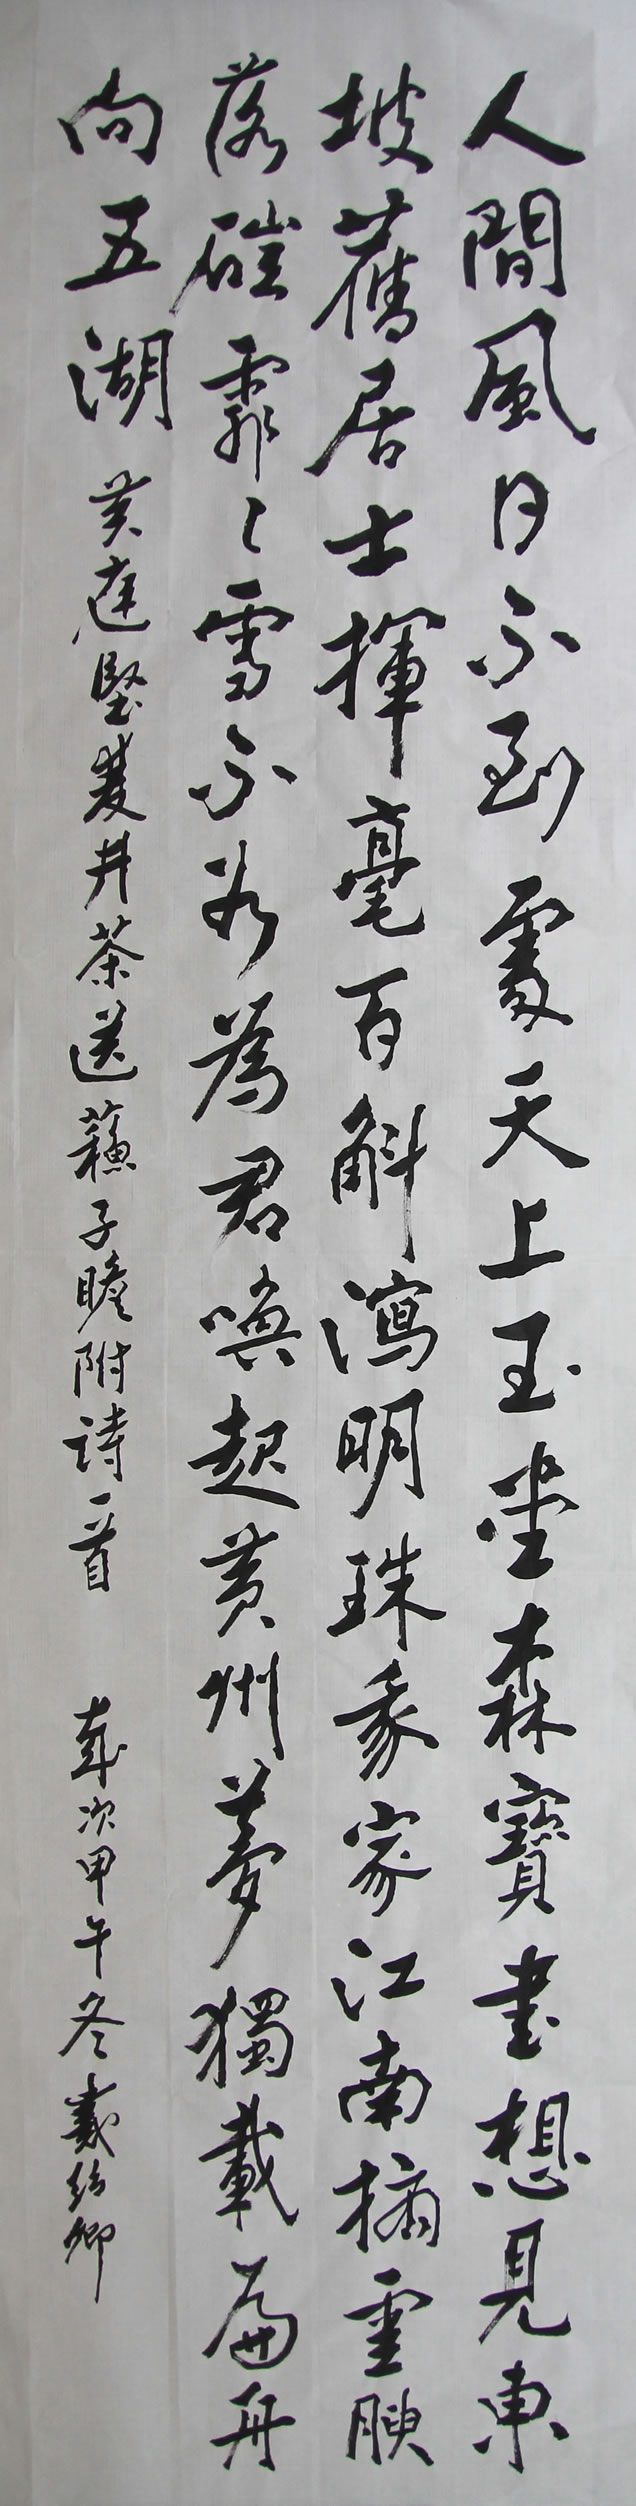 人間風日不到處天上玉堂森寶書想見東
坡舊居士揮毫百斛瀉明珠我家江南摘雲腴
落磑霏〻雪不如為君喚起黃州夢獨載扁舟
向五湖 黃庭堅雙井茶送蘇子瞻附詩一首 歲次甲午冬戴紹卿